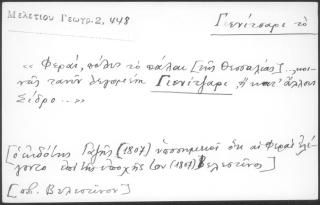 Μελετίου Γεωγρ. 2, 448
Γενίτσαρι τὸ
« Φεραί, πόλις τὸ πάλαι [τῆς Θεσσαλίας]
τανῦν λεγομένη Γενίτζαρι, ἢ κατ' ἄλλους
Σίδρο..»
[ὁ ἐκδότης Γαζῆς (1807) ὑποσημειοῖ ὅτι αἱ Φεραὶ
ἐπὶ τῆς ἐποχῆς του (1807) Βελεστῖνος]
[σβ. Βελεστῖνον]